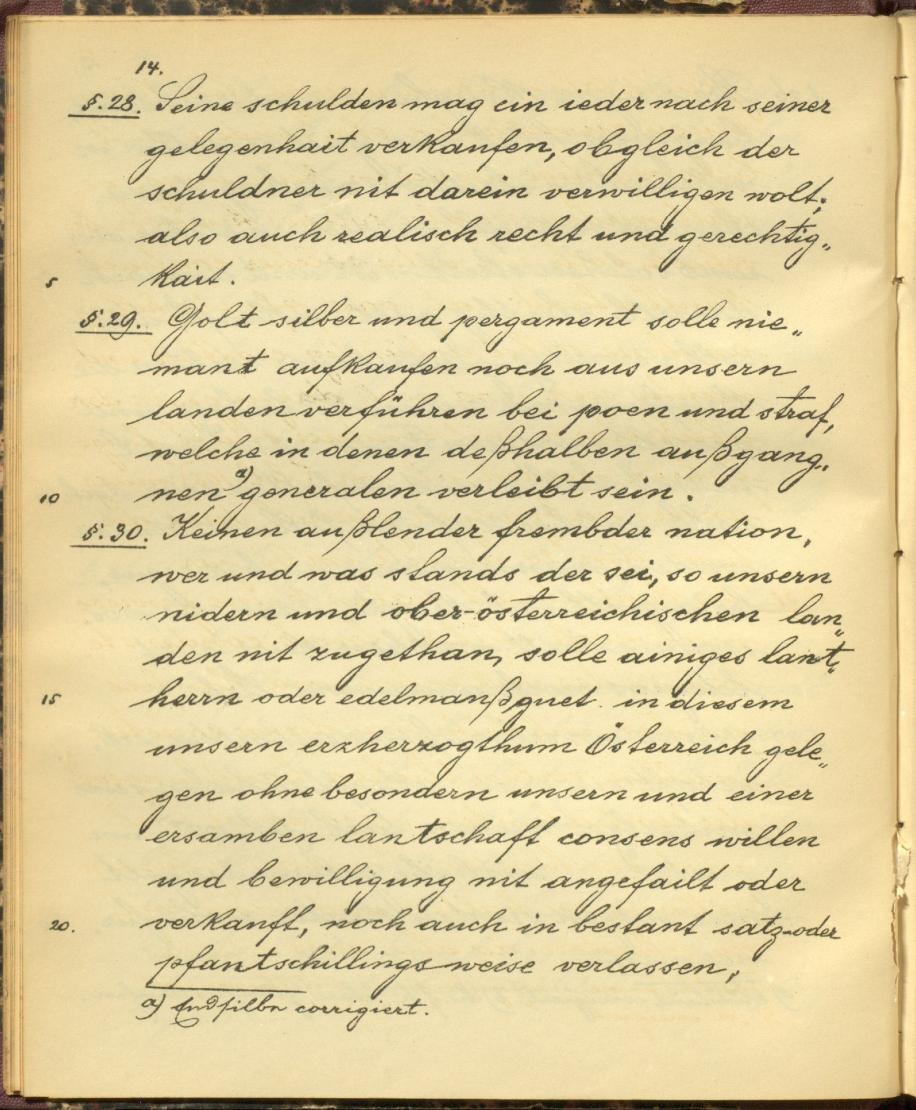 14.
§.28. Seine schulden mag ein ieder nach seiner
gelegenhait verkaufen, obgleich der
schuldner nit darein verwilligen wolt;
also auch realisch recht und gerechtig„
5 kait.
§.29. Golt silber und pergament solle nie„
mant aufkaufen noch aus unsern
landen verführen bei poen und straf,
welche in denen deßhalben außgang„
10 nen a) generalen verleibt sein.
§.30. Keinen außlender frembder nation,
wer und was stands der sei, so unsern
nidern und ober-österreichischen lan„
den nit zugethan, solle ainiges lant„
15 herrn oder edelmanßguet in diesem
unsern erzherzogthum Österreich gele„
gen ohne besondern unsern und einer
ersamben lantschaft consens willen
und bewilligung nit angefailt oder
20. verkauft, noch auch in bestant satz-oder
pfantschillingsweise verlassen,
a) Endsilbe corrigiert.